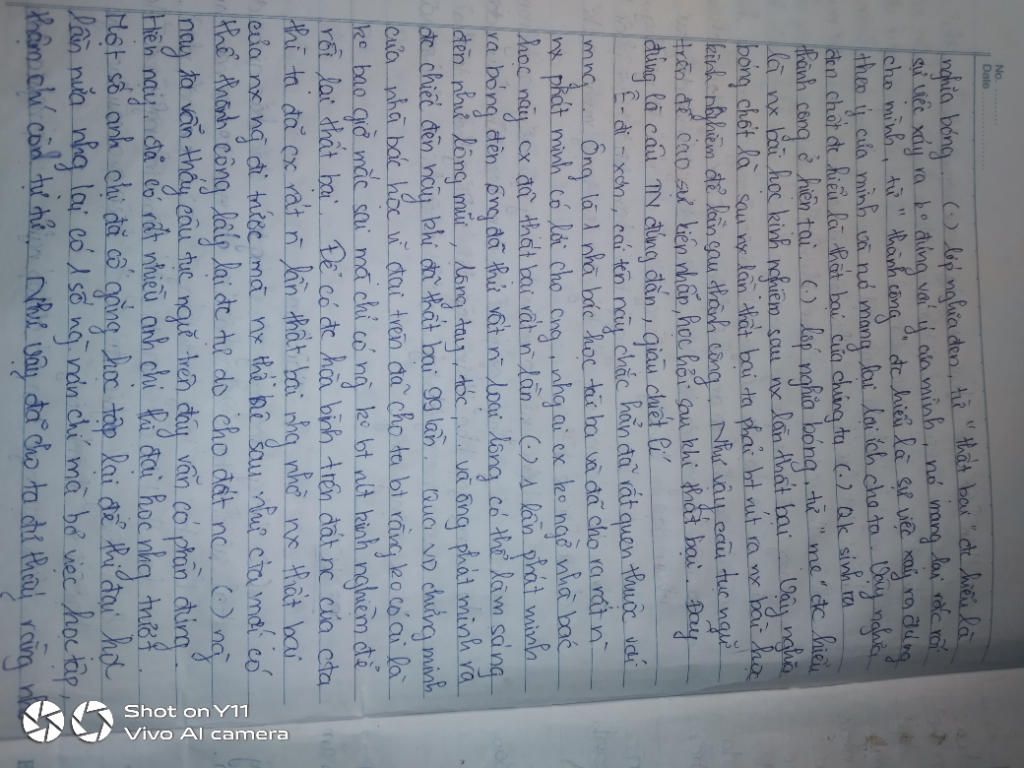 No.
Date
nghĩa bóng. (.) lớp nghĩa đen, từ "thất bại" đc hiểu là
sự việc xảy ra ko đúng với ý của mình, nó mang lại rắc rối
cho mình, từ "thành công" đc hiểu là sự việc xảy ra đúng
theo ý của mình và nó mang lại lợi ích cho ta. Vậy nghĩa
đen chốt đc hiểu là thất bại của chúng ta (.) qk sinh ra
thành công ở hiện tại. (.) lớp nghĩa bóng, từ "mẹ" đc hiểu
là nx bài học kinh nghiệm sau nx lần thất bại. Vậy nghĩa
bóng chốt là sau nx lần thất bại ta phải bt rút ra nx bài học
kinh nghiệm để lần sau thành công. Như vậy câu tục ngữ
trên đề cao sự kiên nhẫn, học hỏi sau khi thất bại. Đây
đúng là câu TN đúng đắn, giàu chiết lí
Ê-đi-xơn, cái tên này chắc hẳn đã rất quen thuộc với
mng. Ông là 1 nhà bác học tài ba và đã cho ra rất n
nx phát minh có lợi cho cng, nhg ai cx ko ngờ nhà bác
học này cx đã thất bại rất n lần. (.) 1 lần phát minh
ra bóng đèn ông đã thử rất n loại lông có thể làm sáng
đèn như lông mũi, lông tay, tóc,... và ông phát minh ra
đc chiếc đèn này khi đã thất bại 99 lần. Qua vd chứng minh
của nhà bác học vĩ đại trên đã cho ta bt rằng ko có ai là
ko bao giờ mắc sai mà chỉ có ng ko bt rút kinh nghiệm để
rồi lại thất bại. Để có đc hòa bình trên đất nc của cta
thì ta đã cx rất n lần thất bại nhg nhờ nx thất bại
của nx ng đi trước mà nx thế hệ sau như cta mới có
thể thành công lấy lại đc tự do cho đất nc. (.) ng
nay ta vẫn thấy câu tục ngữ trên đây vẫn có phần đúng.
Hiện nay đã có rất nhiều anh chị thi đại học nhg trượt.
Một số anh chị đã cố gắng học tập lại để thi đại học
lần nữa nhg lại có 1 số ng nản chí mà bỏ việc học tập,
thậm chí còn tự tử. Như vậy đã cho ta đc thấy rằng
Shot on Y11
Vivo AI camera